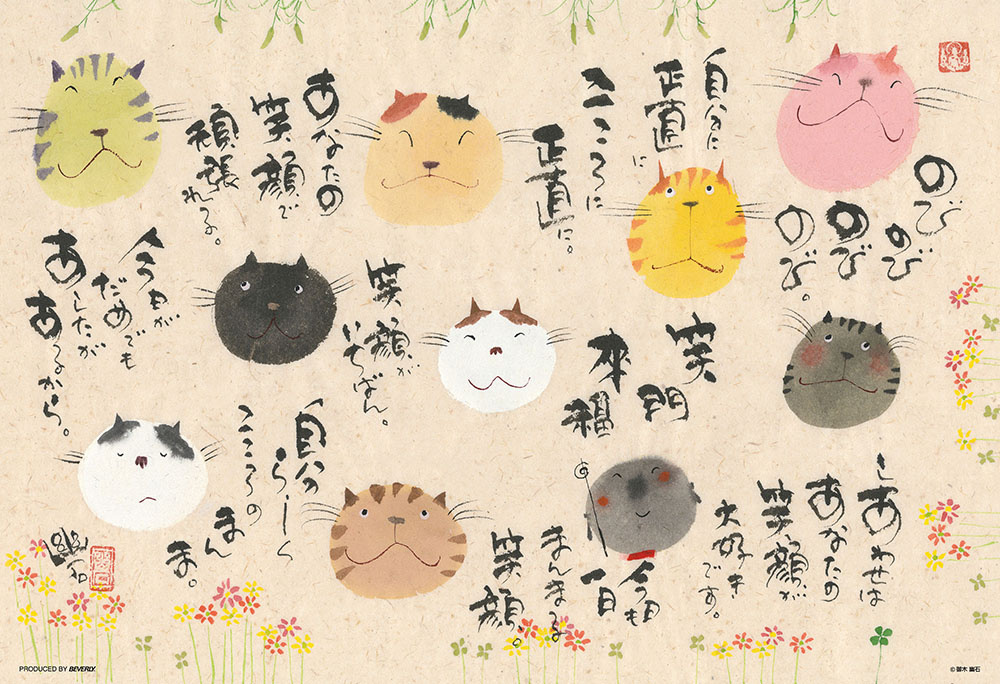 のび
のび
のび
のび。
自分に
正直に
こころに
正直に。
あなたの
笑顔で
頑張れる。
しあわせは
あなたの
笑顔が
大好き
です。
笑門
来福
笑顔が
いちばん。
今日が
だめでも
あしたが
あるから。
今日も
一日
まんまる
笑顔。
自分
らしく
こころの
まん
ま。
幽石
PRODUCED BY BEVERLY.
© 御木 幽石